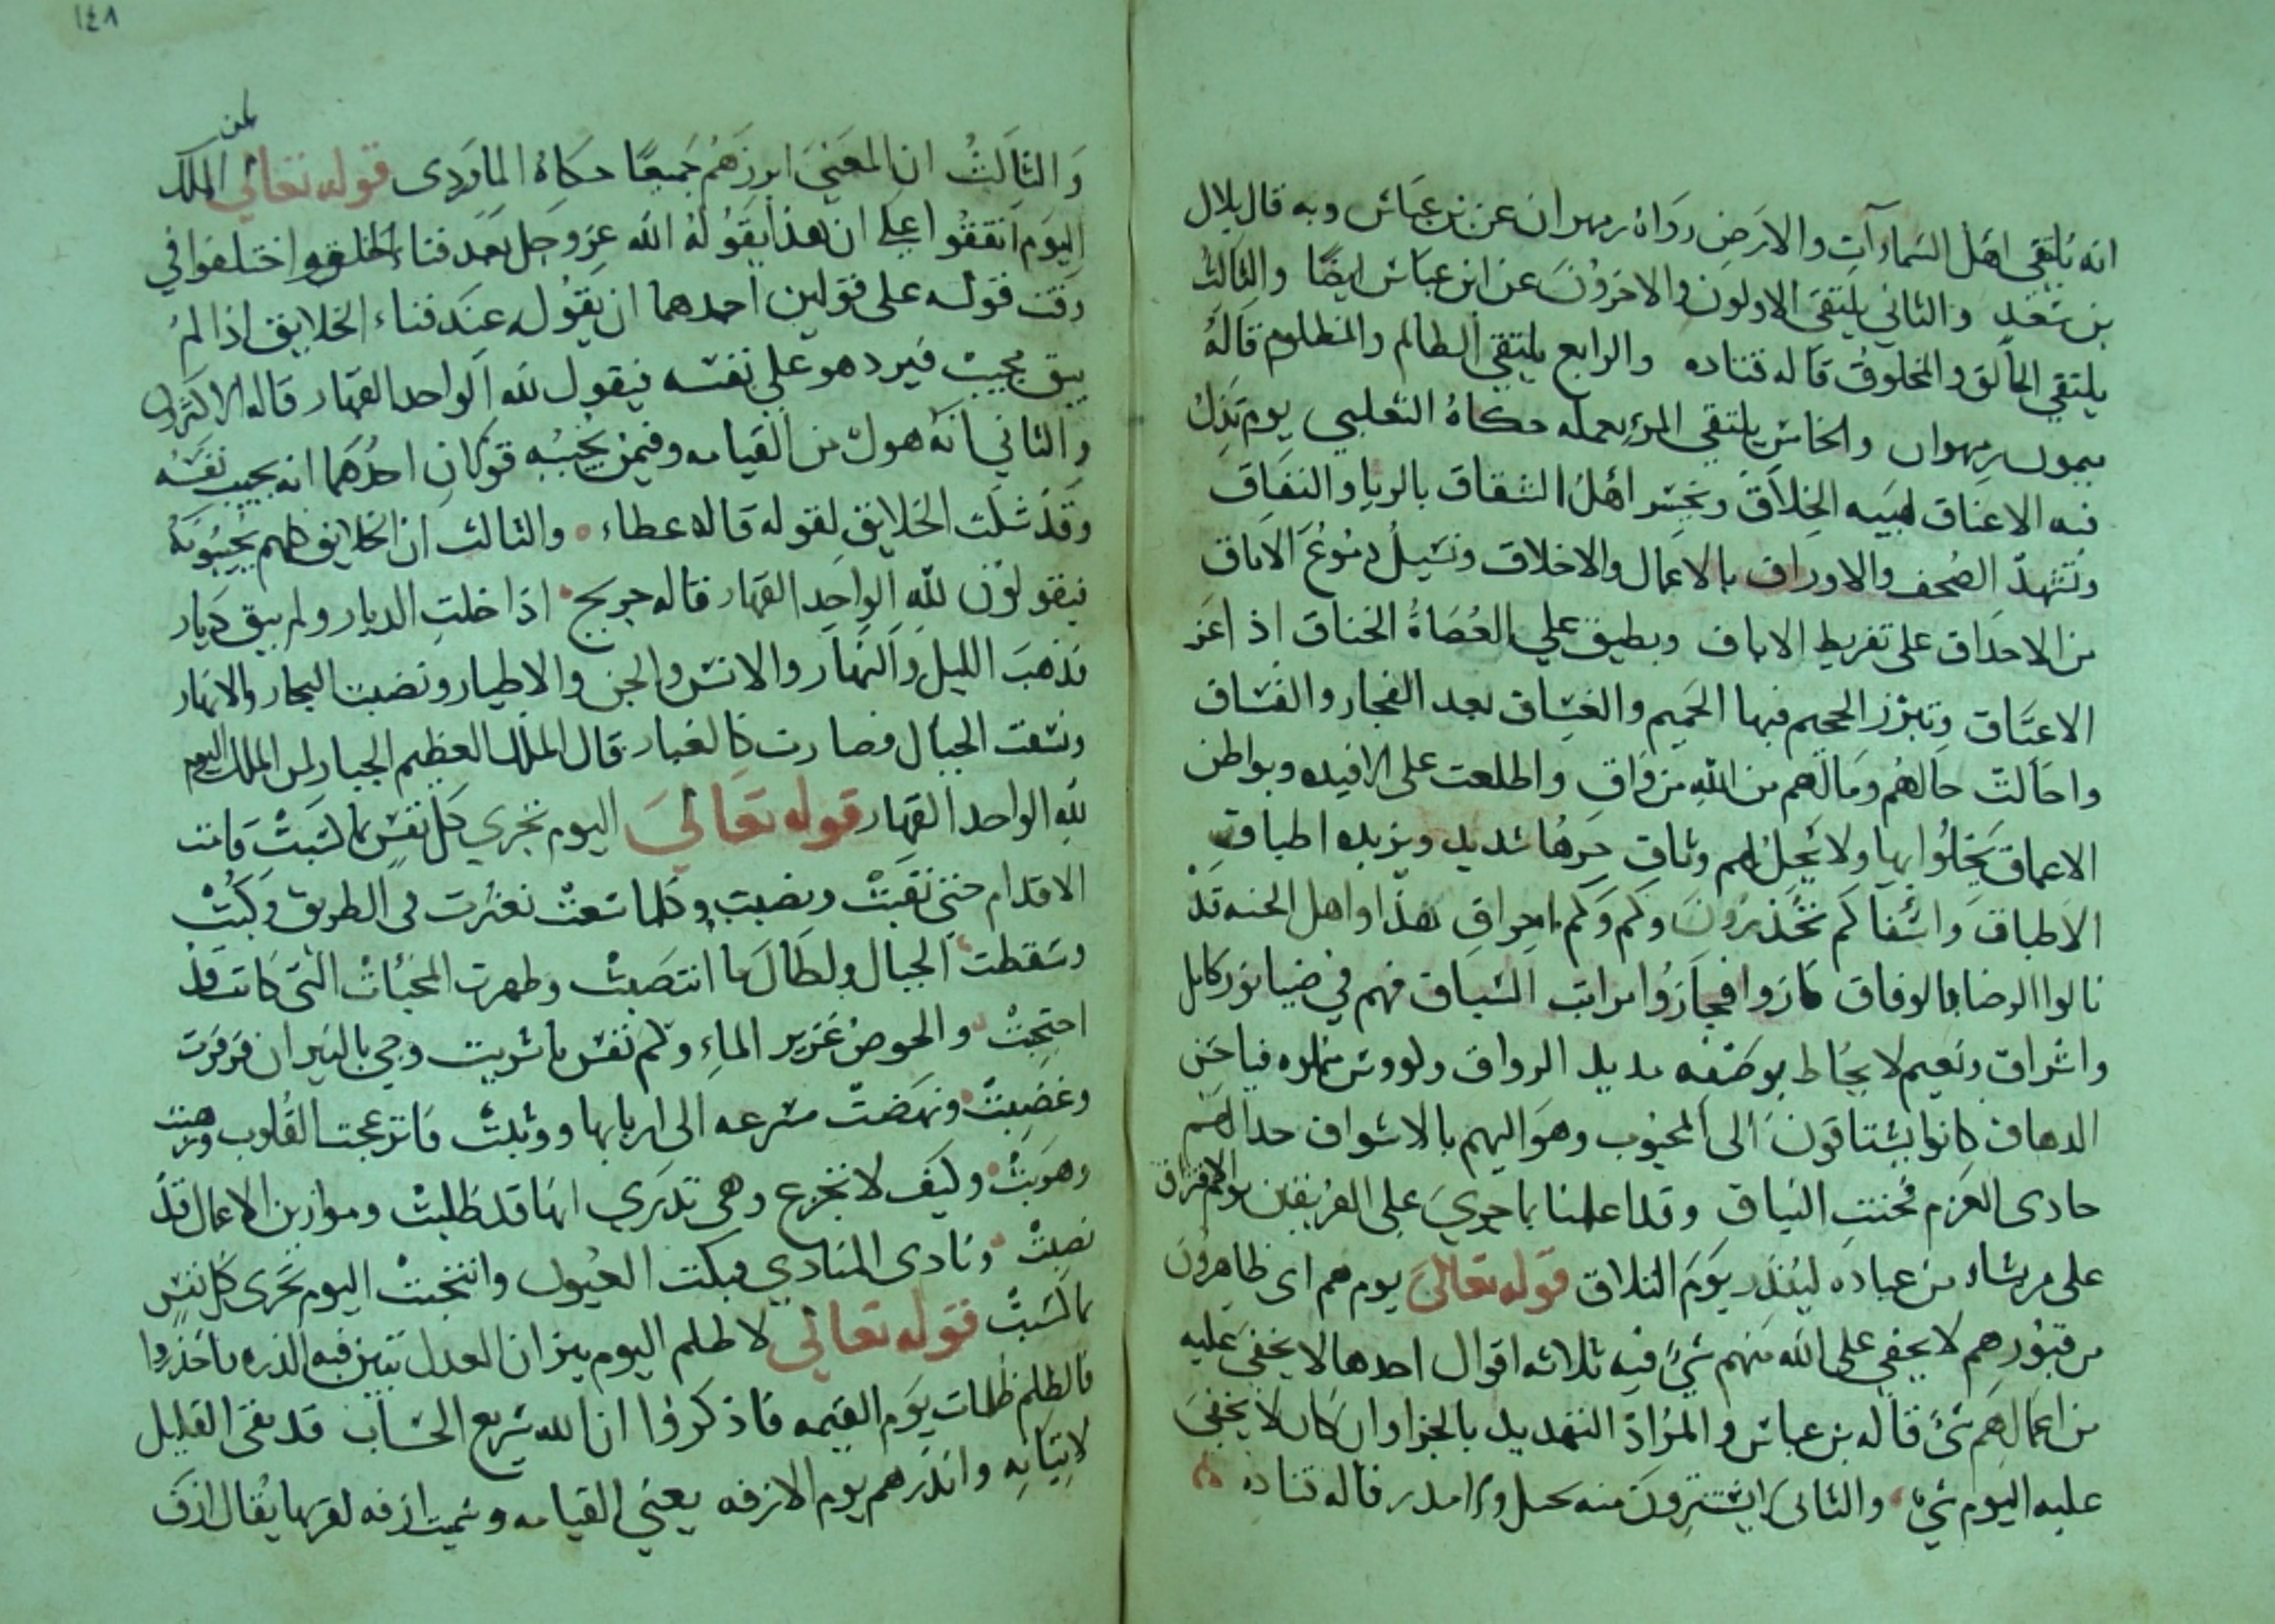 انه يلتقي اهل السماءآت والارض رواه مهران عن بن عباس وبه قال بلال
بن سعد والثاني يلتقي الاولون والاخرون عن ابن عباس ايضا والثالث
يلتقي الخالق والمخلوق قاله قتاده والرابع يلتقي الظالم والمظلوم قاله
ميمون بن مهران والخامس يلتقي المرء بعمله حكاه الثعلبي يوم تذل
فيه الاعناق لهيبه الخلاق ويخسر اهل الشقاق بالريا والنفاق
وتشهد الصحف والاوراق بالاعمال والاخلاق وتسيل دموع الاماق
من الاحداق على تفريط الاباق ويطيق علي العصاة الخناق اذ اعز
الاعتاق وتبرز الجحيم فيها الحميم والغساق بعد الفجار والفساق
واحالت حالهم ومالهم من الله من واق واطلعت على الافيده وبواطن
الاعماق يخلوا بها ولا يحل لهم وثاق حرها شديد ويزيده اطباق
الاطباق واسفا كم تحذرون وكم وكم احراق هذا واهل الجنه قد
نالوا الرضا بالوفاق فازوا فجازوا مراتب السباق فهم في ضيا نور كامل
واشراق ونعيم لا يحاط بوصفه مديد الرواق ولو
الدهاق كانوا يشتاقون الى المحبوب وهو اليهم بالاشواق حدا لهم
حادى العزم فحنت النياق وقد اعلمنا بما جري على الفريقين يوم الافتراق
على من يشاء من عباده لينذر يوم التلاق قوله تعالى يوم هم اى ظاهرون
من قبورهم لا يخفي على الله منهم شئ فيه ثلاثه اقوال احدها لا يخفي عليه
من اعمالهم شئ قاله بن عباس والمراد التهديد بالجزا وان كان لا يخفي
عليه اليوم شي والثاني لا يستترون منه بجبل ولا مدر قاله قتاده
١٤٨
والثالث ان المعني ابرزهم جميعا حكاه الماوردى قوله تعالى لمن الملك
اليوم اتفقوا علي ان هذا يقوله الله عز وجل بعد فناء الخلق واختلفوا في
وقت قوله على قولين احدهما ان يقوله عند فناء الخلايق اذا لم
يبق مجيب فيرد هو على نفسه فيقول لله الواحد القهار قاله الاكثرون
والثاني انه هول من القيامه وفيمن يجيبه قولان احدهما انه يجيب نفسه
وقد سكت الخلايق لقوله قاله عطاء والثالث ان الخلايق كلهم يجيبونه
فيقولون لله الواحد القهار قاله جريج اذا خلت الديار ولم يبق ديار
فذهب الليل والنهار والانس والجن والاطيار ونضبت البحار والانهار
ونسفت الجبال فصارت كالغبار قال الملك العظيم الجبار لمن الملك اليوم
لله الواحد القهار قوله تعالي اليوم تجزي كل نفس بما كسبت قامت
الاقدام حتي تعبت ونصبت وكلما سعت تعثرت فى الطريق وكبت
وسقطت الجبال ولطالما انتصبت وظهرت المخبئات التى كانت قد
احتجبت والحوض غزير الماء وكم نفس ما شربت وجي بالنيران فزفرت
وغضبت ونهضت مسرعه الى اربابها ووثبت فانزعجت القلوب ورهبت
وهربت وكيف لا تجزع وهى تدري انها قد طلبت وموازين الاعمال قد
نصبت ونادى المنادي فبكت العيون وانتحبت اليوم تجزى كل نفس
بما كسبت قوله تعالي لا ظلم اليوم ميزان العدل تبين فيه الذره فاحذروا
فالظلم ظلمات يوم القيمه فاذكروا ان الله سريع الحساب قد بقى القليل
لاتيانه وانذرهم يوم الازفه يعني القيامه وسميت ازفه لقربها يقال ازف